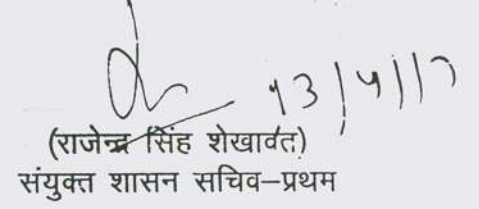 13/4/17
(राजेन्द्र सिंह शेखावत)
संयुक्त शासन सचिव–प्रथम